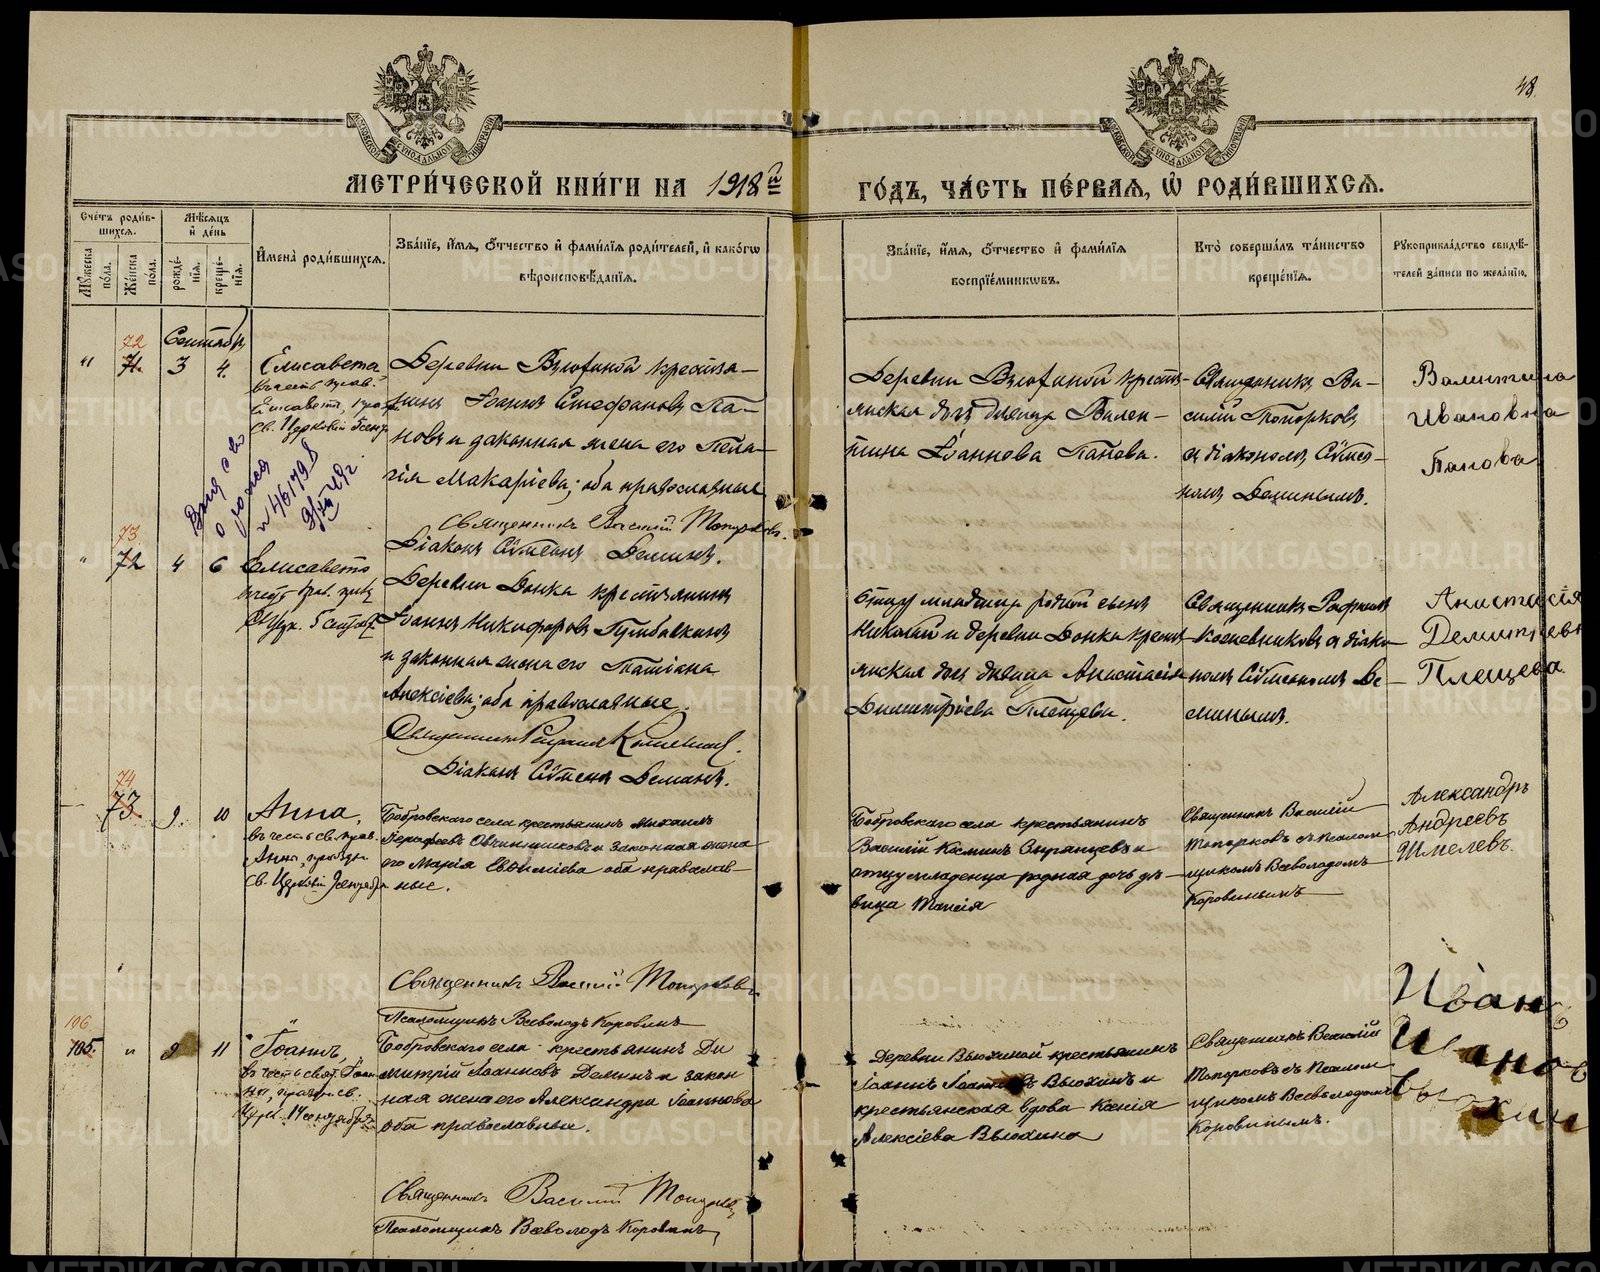 48.
МЕТРИ́ЧЕСКОЙ КНИ́ГИ НА 1918й
ГО́ДЪ, ЧА́СТЬ ПЕ́РВАЯ, Ѡ҆ РОДИ́ВШИХСЯ.
Сче́тъ роди́в-
шихся.
Мѣ́сяцъ
и҆ де́нь
Мꙋ́жеска
по́ла.
Же́нска
по́ла.
рожде́-
нїѧ.
креще́-
нїѧ.
И҆мена̀ роди́вшихсѧ.
Зва́нїе, и҆́мѧ, ѻ҆́тчество и҆ фами́лїѧ роди́телей, и҆ како́гѡ
вѣроисповѣ́данїѧ.
Зва́нїе, и҆́мѧ, ѻ҆́тчество и҆ фами́лїѧ
воспрїе́мникѡвъ.
Кто̀ соверша́лъ та́инство
креще́нїѧ.
Рꙋкоприкла́дство свидѣ́-
телей за́писи по жела́нїю.
Сентябрь
72
71. 3 4.
Елисавета
въ честь прав.
Елисавет, празд.
Св. Церковію 5 сент.
Деревни Вьюхиной крестья-
нинъ Іоаннъ Стефановъ Па-
новъ и законная жена его Пела-
гія Макаріева; оба православные
Священникъ Василій Топорковъ.
Діаконъ Сѵмеонъ Деминъ.
Деревни Вьюхиной кресть-
янская дочь девица Вален-
тина Іоаннова Панова.
Священникъ Ва-
силій Топорковъ
съ діакономъ Сѵмео-
номъ Деминымъ.
Валентина
Ивановна
Панова
73.
72 4 6
Елисавета
Деревни Бонка крестьянинъ
Іоаннъ Никифоровъ
и законная жена его Татіана
Алексіева; оба православные.
Діаконъ Сѵмеонъ Деминъ.
Отцу младенца родной сынъ
Николай и деревни Бонка кресть-
янская дочь девица Анастасія
Димитріева Плещева.
Священникъ
съ діако-
номъ Сѵмеономъ Де-
минымъ.
Анистасія
Демитрева
Плещева
74
73. 9. 10
Анна,
въ честь св. прав.
Анны, праздн.
св. Церковію 9 сентября
Бобровскаго села крестьянинъ Михаилъ
Овчинниковъ и законная жена
его Марія Евѳиміева оба православ-
ные.
Священникъ Василій Топорковъ
Псаломщикъ Всеволодъ Коровинъ
Бобровскаго села крестьянинъ
Василій
отцу младенца родная дочь дѣ-
вица Таисія
Священникъ Василій
Топорковъ съ Псалом-
щикомъ Всеволодомъ
Коровинымъ
Александръ
Андреевъ
Шмелевъ.
106
105. " 9 11
Іоаннъ,
въ честь свят. Іоан-
на, праздн. св.
Церк. 11 сентября
Бобровскаго села крестьянинъ Ди
митрій Іоанновъ Деминъ и закон
ная жена его Александра Іоаннова
оба православные.
Священникъ Василій Топорковъ
Псаломщикъ Всеволодъ Коровинъ
Деревни Вьюхиной крестьянинъ
Іоаннъ Іоанновъ Вьюхинъ и
крестьянская вдова Ксенія
Алексіева Вьюхина
Священникъ Василій
Топорковъ съ Псалом-
щикомъ Всеволодомъ
Коровинымъ.
Иван
Иванов
Вьюхин
METRIKI.GASO-URAL.RU